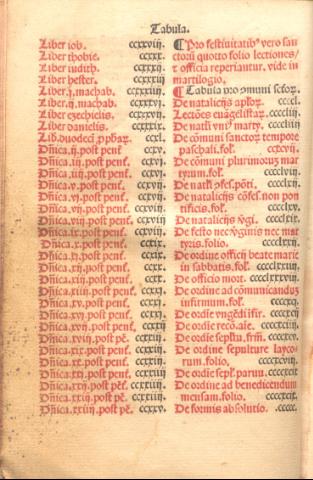 Tabula.
Liber iob. ccxxviij.
Liber thobie. ccxxx.
Liber iudith. ccxxxij.
Liber hester. ccxxxiij
Liber .j. machab. ccxxxiiij
Liber .ij. machab. ccxxxvi
Liber ezechielis. ccxxxviij.
Liber danielis. ccxxxix.
Lib. duodecī ꝓphar. ccxl.
Dñica .ij. post pent̄. ccxv.
Dñica .iij. post pent̄. ccxv.
Dñica .v. post pent̄. ccxvi.
Dñica .vi. post pent̄. ccxvij
Dñica .vij. post pent̄. ccxvij.
Dñica .viij. post pent̄. ccxviij
Dñica .ix. post pent̄. ccxviij
Dñica .x. post pent̄. ccxix.
Dñica .xi. post pent̄. ccxix.
Dñica .xij. post pent̄. ccxx.
Dñica .xiij. post pent̄. ccxx.
Dñica .xv. post pent̄. ccxxi
Dñica .xvi. post pent̄. ccxxi
Dñica .xvij. post pent̄. ccxxij
Dñica .xviij. post pē. ccxxij.
Dñica .xix. post pent̄. ccxxiij
Dñica .xx. post pent̄. ccxxiij
Dñica .xxi. post pē. ccxxiiij
Dñica .xxij. post pē. ccxxiiij.
Dñica .xxiij. post pē. ccxxv.
¶ Pro festiuitatibꝰ vero san
ctorū quotto folio lectiones
⁊ officia reperiantur, vide in
martilogio.
¶ Tabula pro cōmuni sctoꝝ.
De natalicijs apl'oꝝ.
Lectiōes euāgelistaꝝ. ccccliij
De natl'i vniꝰ marty. ccccliij
De cōmuni sanctoꝝ tempore
paschali. fol'.
De cōmuni plurimoruz mar
tyrum. fol'. cccclviij
De natl'i ꝯfes. pōti. cccclxij
De natalicijs cōfes. non pon
tificis. fol'. cccclxv.
De natalicijs vgī. cccclxix.
De festo nec vginis nec mar
tyris. folio. cccclxxij
De ordine officij beate marie
in sabbatis. fol'. cccclxxiij
De officio mort. cccclxxviij
De ordine ad cōmunicanduz
infirmum. fol'. ccccxci
De ordīe vngēdi īfir. ccccxcij
De ordīe recō. aīe. ccccxciij
De ordīe sepl'tu. frm̄. ccccxcv.
De ordine sepulture layco-
rum. folio. ccccxcviij
De ordīe sepl'. paruu. ccccxcix
De ordine ad benedicendum
mensam. folio. ccccxcix
De formis absolutio. ccccc.